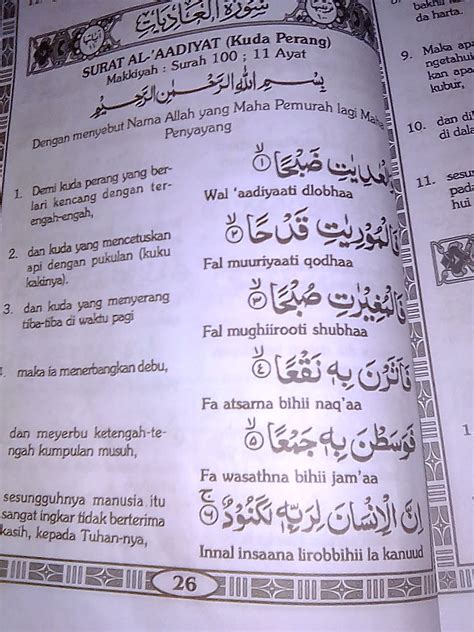 سورة العاديات
SURAT AL-'AADIYAT (Kuda Perang)
Makkiyah : Surah 100 ; 11 Ayat
بِسْمِ اللهِ الرَّحْمٰنِ الرَّحِيْمِ
Dengan menyebut Nama Allah yang Maha Pemurah lagi Maha
Penyayang
1. Demi kuda perang yang ber-
lari kencang dengan ter-
engah-engah,
الْعٰدِيٰتِ ضَبْحًا ۱
Wal 'aadiyaati dlobhaa
2. dan kuda yang mencetuskan
api dengan pukulan (kuku
kakinya).
فَالْمُوْرِيٰتِ قَدْحًا ۲
Fal muuriyaati qodhaa
3. dan kuda yang menyerang
tiba-tiba di waktu pagi
فَالْمُغِيْرٰتِ صُبْحًا ۳
Fal mughiirooti shubhaa
maka ia menerbangkan debu,
فَاَثَرْنَ بِهٖ نَقْعًا ٤
Fa atsarna bihii naq'aa
dan meyerbu ketengah-te-
ngah kumpulan musuh,
فَوَسَطْنَ بِهٖ جَمْعًا ۵
Fa wasathna bihii jam'aa
sesungguhnya manusia itu
sangat ingkar tidak berterima
kasih, kepada Tuhan-nya,
اِنَّ الْاِنْسَانَ لِرَبِّهٖ لَكَنُوْدٌ ۚ ٦
Innal insaana lirobbihii la kanuud
26
da harta.
9. Maka ap
ngetahu
kan apa
kubur,
10. dan di
di dala
11. sesu
pada
hui